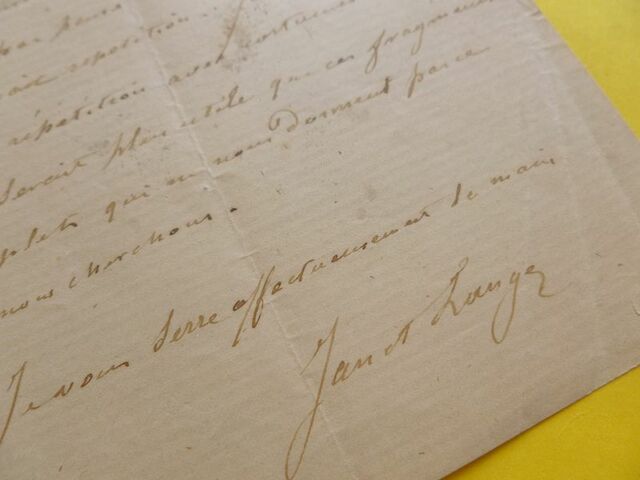 répétition
répétition avec certaines
serait plus utile que ces fragments
plets qui ne nous donnent parce
nous cherchons.
Je vous serre affectueusement la main
Janet Lange